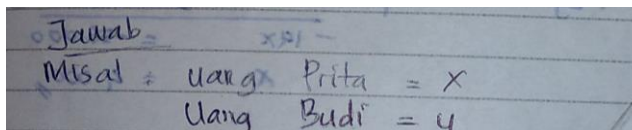 Jawab
Misal : Uang Prita = x
Uang Budi = y